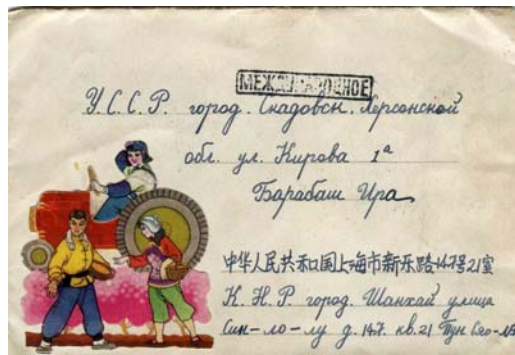 МЕЖДУНАРОДНОЕ
У.С.С.Р. город. Скадовск. Херсонской
обл. ул. Кирова 1ª
Барабаш Ира
中华人民共和国上海市新乐路147号21室
К.Н.Р. город. Шанхай улица
Син-ло-лу д. 147. кв. 21 Тун